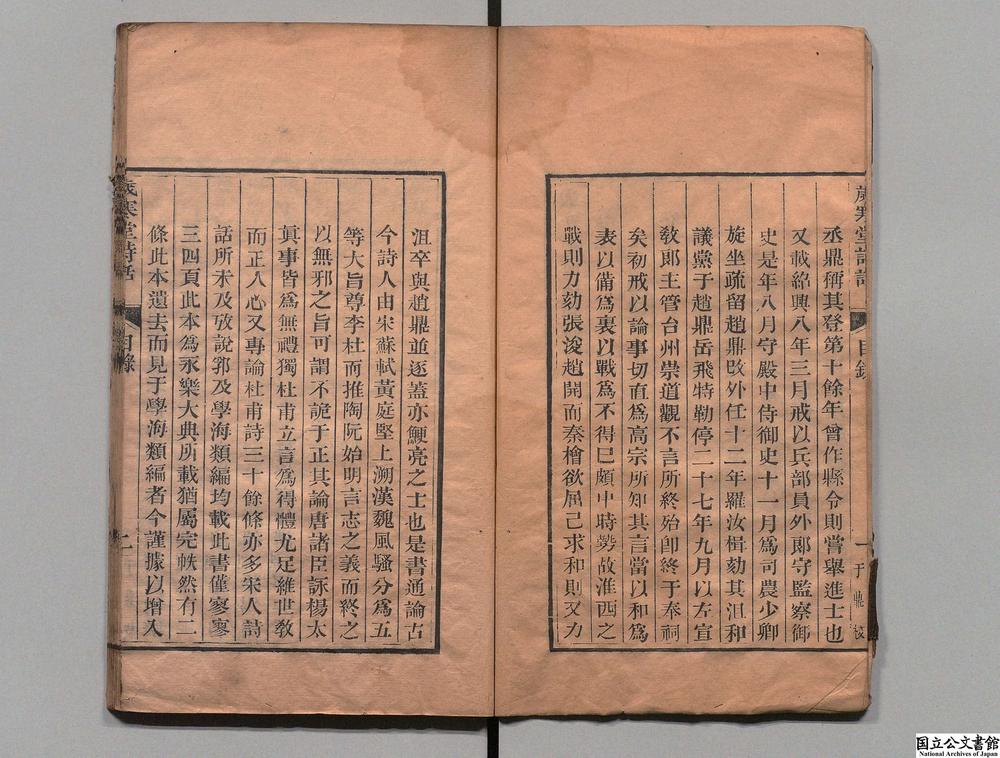 歲寒堂詩話
目錄
一
于鼎校
丞鼎稱其登第十餘年曾作縣令則嘗舉進士也
又載紹興八年三月戒以兵部員外郎守監察御
史是年八月守殿中侍御史十一月為司農少卿
旋坐疏留趙鼎改外任十二年羅汝楫劾其沮和
議黨于趙鼎岳飛特勒停二十七年九月以左宣
敎郎主管台州崇道觀不言所終始卽終于奉祠
矣初戒以論事切直為高宗所知其言當以和為
表以備為裏以戰為不得已頗中時勢故淮西之
戰則力劾張浚趙開而秦檜欲屈己求和則又力
沮卒與趙鼎並逐蓋亦鯁亮之士也是書通論古
今詩人由宋蘇軾黃庭堅上溯漢魏風騷分為五
等大旨尊李杜而推陶阮始明言志之義而終之
以無邪之旨可謂不詭于正其論唐諸臣詠楊太
眞事皆為無禮獨杜甫立言為得體尤足維世敎
而正人心又專論杜甫詩三十餘條亦多宋人詩
話所未及攷說郛及學海類編均載此書僅寥寥
三四頁此本為永樂大典所載猶屬完帙然有二
條此本遺去而見于學海類編者今謹據以增入
歲寒堂詩話
目錄
國立公文書館
National Archives of Japan